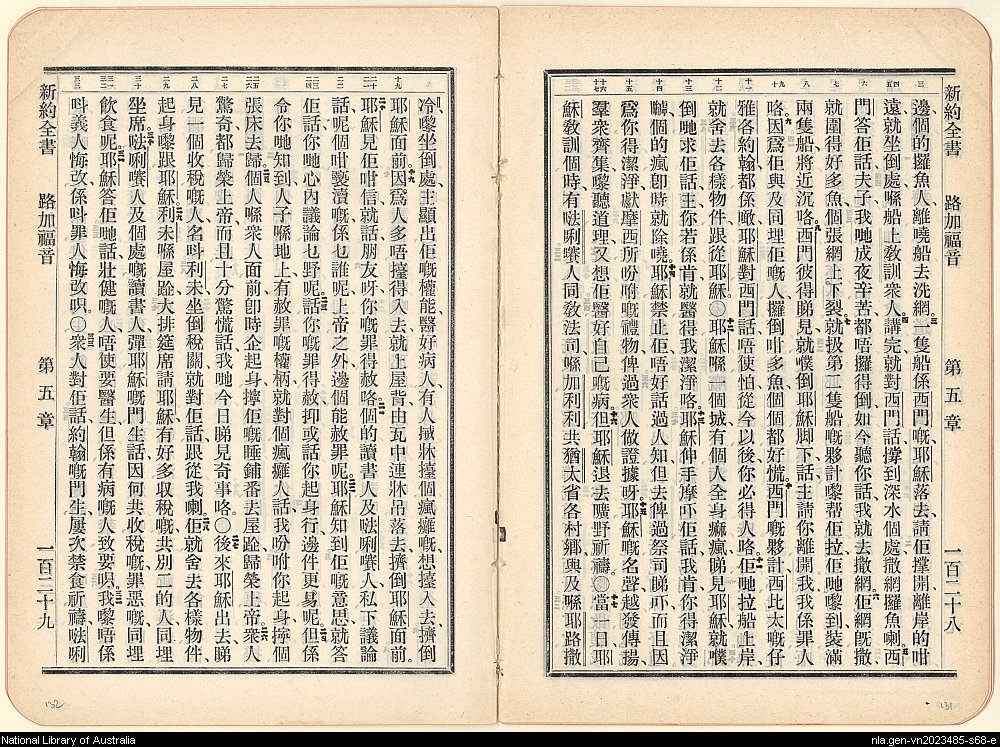 新約全書 路加福音 第五章 一百二十八
邊個的攞魚人離嘵船去洗網一隻船係西門嘅耶穌落去請佢撑開離岸的咁
遠就坐倒處喺船上教訓衆人講完就對西門話撑到深水個處撒網攞魚喇西
門答佢話夫子我哋成夜辛苦都唔攞得倒如今聽你話我就去撒網佢網既撒
就圍得好多魚個張網上下裂就扱第二隻船嘅夥計嚟帮佢拉佢哋嚟到裝滿
兩隻船將近沉咯西門彼得睇見就㒒倒耶穌脚下話主請你離開我我係罪人
咯因爲佢與及同埋佢嘅人攞倒咁多魚個個都好慌西門嘅夥計西比太嘅仔
雅各約翰都係噉耶穌對西門話唔使怕從今以後你必得人咯佢哋拉船上岸
就舍去各樣物件跟從耶穌〇耶穌喺一個城有個人全身痲瘋睇見耶穌就㒒
倒哋求佢話主你若係肯就醫得我潔淨咯耶穌伸手摩吓佢話我肯你得潔淨
嚹個的瘋卽時就除嘵耶穌禁止佢唔好話過人知但去俾過祭司睇吓而且因
爲你得潔淨獻摩西所吩咐嘅禮物俾過衆人做證據呀耶穌嘅名聲越發傳揚
羣衆齊集嚟聽道理又想佢醫好自己嘅病但耶穌退去曠野祈禱〇當一日耶
穌教訓個時有㗲唎㘔人同敎法司喺加利利共猶太省各村鄉與及喺耶路撒
新約全書 路加福音 第五章 一百二十九
冷嚟坐倒處主顯出佢嘅權能醫好病人有人拢牀擡個瘋癱嘅想擡入去擠倒
耶穌面前因爲人多唔擡得入去就上屋背由瓦中連牀吊落去擠倒耶穌面前
耶穌見佢咁信就話朋友呀你嘅罪得赦咯個的讀書人及㗲唎㘔人私下議論
話呢個咁褻瀆嘅係乜誰呢上帝之外邊個能赦罪呢耶穌知到佢嘅意思就答
佢話你哋心內議論乜野呢話你嘅罪得赦抑或話你起身行邊件更易呢但係
令你哋知到人子喺地上有赦罪嘅權柄就對個瘋癱人話我吩咐你起身擰個
張床去歸個人喺衆人面前卽時企起身擰佢嘅睡鋪番去屋跲歸榮上帝衆人
驚奇都歸榮上帝而且十分驚慌話我哋今日睇見奇事咯〇後來耶穌出去睇
見一個收稅嘅人名呌利未坐倒稅關就對佢話跟從我喇佢就舍去各樣物件
起身嚟跟耶穌利未喺屋跲大排筵席請耶穌有好多収稅嘅共別二的人同埋
坐席㗲唎㘔人及個處嘅讀書人彈耶穌嘅門生話因何共收稅嘅罪惡嘅同埋
飲食呢耶穌答佢哋話壯健嘅人唔使要醫生但係有病嘅人致要呮我嚟唔係
呌義人悔改係呌罪人悔改呮〇衆人對佢話約翰嘅門生屢次禁食祈禱㗲唎
132
131
National Library of Australia
nla.gen-vn2023485-s68-e